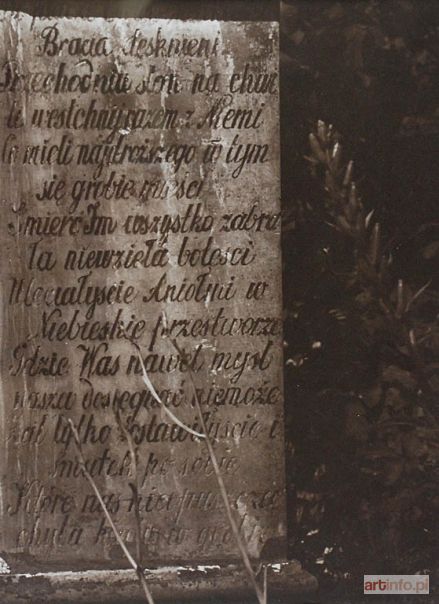 Bracia, tesknieni
Przechodniu stoń na chwi
le westchnij razem z Niemi
Co mieli najdroższego w tym
się grobie mieści
Śmierć Im wszystko zabra
ła niewzieła boleści
Aniołmi w
Niebieskie przestworza
Gdzie Was nawet myśl
nasza dosięgnąć niemoże
żal tylko zostawiłyście i
smutek po sobie
Które nas
chyba w grobie
artinfo.pl